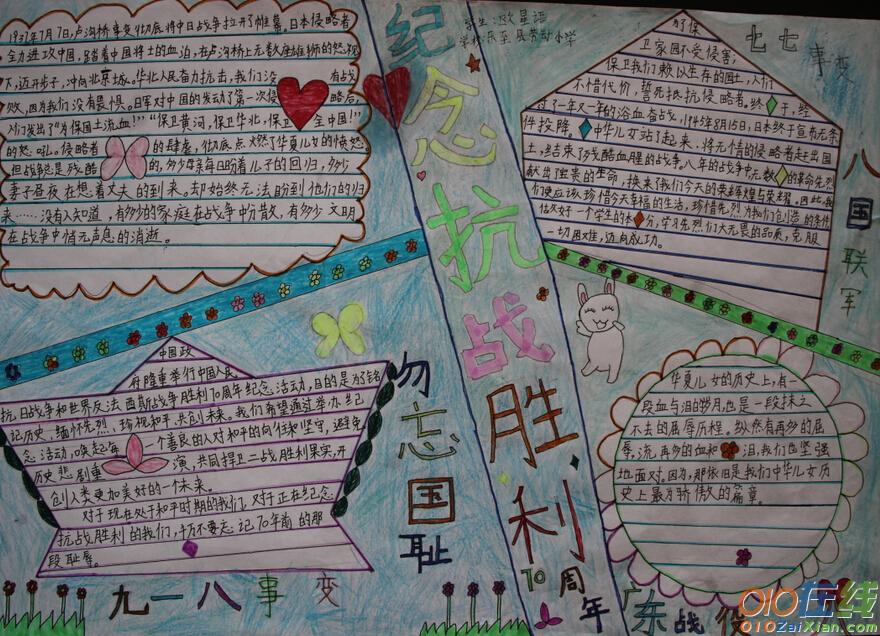 1937年7月7日,卢沟桥事变彻底将中日战争拉开了帷幕。日本侵略者
全力进攻中国,踏着中国将士的血泊,在卢沟桥上无数雄狮的怒视
下,迈开步子,冲向北京城。华北人民奋力抗击,我们没有战
败,因为我们没有畏惧。日军对中国的发动了第一次侵略后,
人们发出了“为保国土流血!”“保卫黄河,保卫华北,保卫全中国!”
的怒吼。侵略者的肆虐,彻底点燃了华夏儿女的愤怒。
但战争总是残酷的,多少母亲每日盼着儿子的回归,多少
妻子昼夜在想着丈夫的到来。却始终无法盼到他们的归
来……没有人知道,有多少的家庭在战争中分散,有多少文明
在战争中悄无声息的消逝。
学生:欧星语
学校:乐至县劳动小学
纪念抗战胜利
70周年
为了保
卫家园不受侵害;
保卫我们赖以生存的国土,人们
不惜代价,誓死抵抗侵略者。终于,经
过了一年又一年的浴血奋战,1945年8月15日,日本终于宣布无条
件投降。中华儿女站了起来,将无情的侵略者赶出国
土,结束了残酷血腥的战争。八年的战争中无数的革命先烈
献出宝贵的生命,换来了我们今天的荣辉煌与荣耀,因此,我
们更应该珍惜今天幸福的生活,珍惜先烈为我们创造的条件
做好一个学生的本分,学习先烈们大无畏的品质,克服
一切困难,迈向成功。
七七事变
八国联军
中国政
府隆重举行中国人民
抗日战争和世界反法西斯战争胜利70周年纪念活动,目的是为了铭
记历史,缅怀先烈,珍视和平,共创未来。我们希望通过举办纪
念活动,唤起每一个善良的人对和平的向往和坚守,避免
历史悲剧重演,共同捍卫二战胜利果实,开
创人类更加美好的一个未来。
对于现在处于和平时期的我们,对于正在纪念
抗战胜利的我们,千万不要忘记70年前的那
段耻辱。
勿忘国耻
九一八事变
华夏儿女的历史上,有一
段血与泪的岁月,也是一段抹之
不去的屈辱历程,纵然有再多的屈
辱,流再多的血和泪,我们也坚强
地面对。因为,那依旧是我们中华儿女历
史上最为骄傲的篇章。
广东战役
010在线
010ZaiXian.com